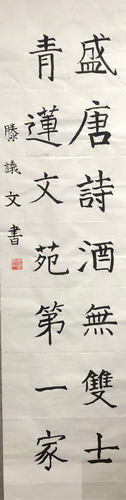 盛唐詩酒無雙士
青蓮文苑第一家
滕議文書